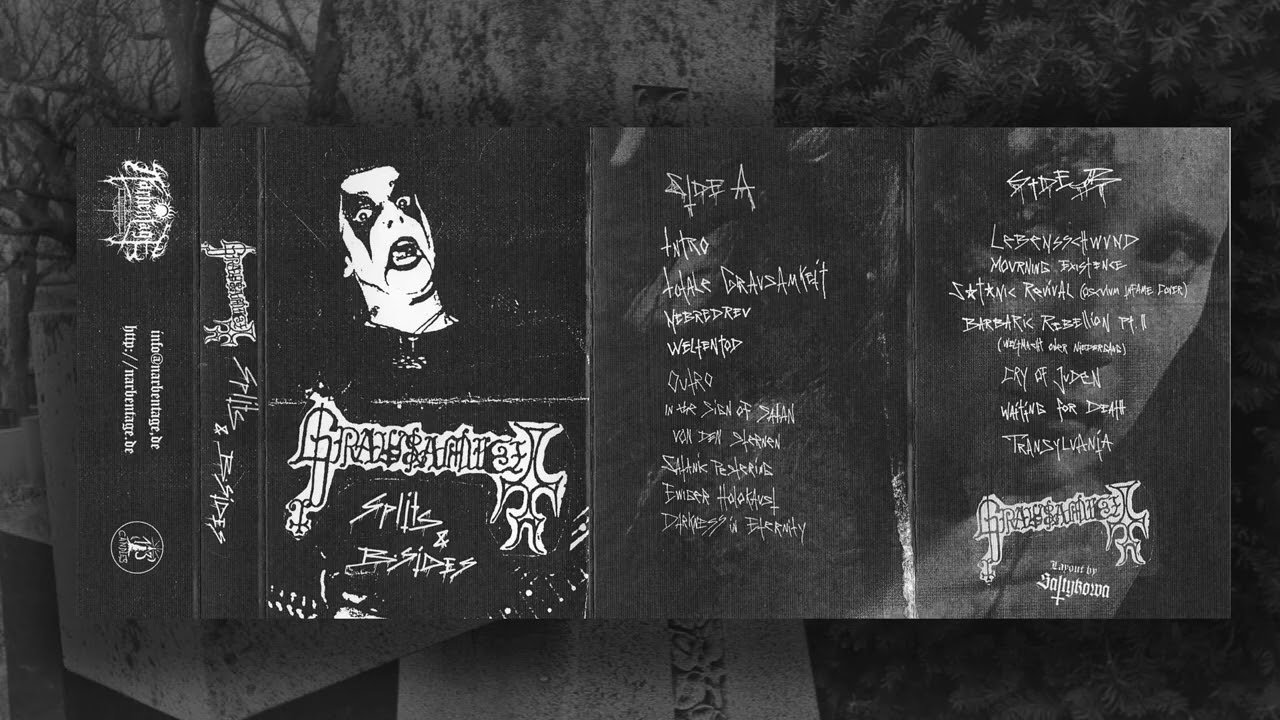 Narbentage
info@narbentage.de
http://narbentage.de
13
CANDLES
GRAUSAMKEIT
Splits
& B-SiDES
GRAUSAMKEIT
Splits
&
B-SiDES
SiDE A
INTRO
TOTALE GRAUSAMKEIT
NEBREDREV
WELTENTOD
OUTRO
IN the SIGN OF SATAN
VON DEN STERNEN
SATANIC PESTERING
EWIGER HOLOKAUST
DARKNESS iN ETERNITY
SiDE B
LEBENSSCHWUND
MOURNING EXISTENCE
S★T★NIC REViVAL (OSCULUM INFAME COVER)
BARBARIC REBELLION PT. II
(WELTMACHT ODER NIEDERGANG)
CRY OF JUDEN
WAITING FOR DEATH
TRANSYLVANIA
GRAUSAMKEIT
Layout by
Saltykowa